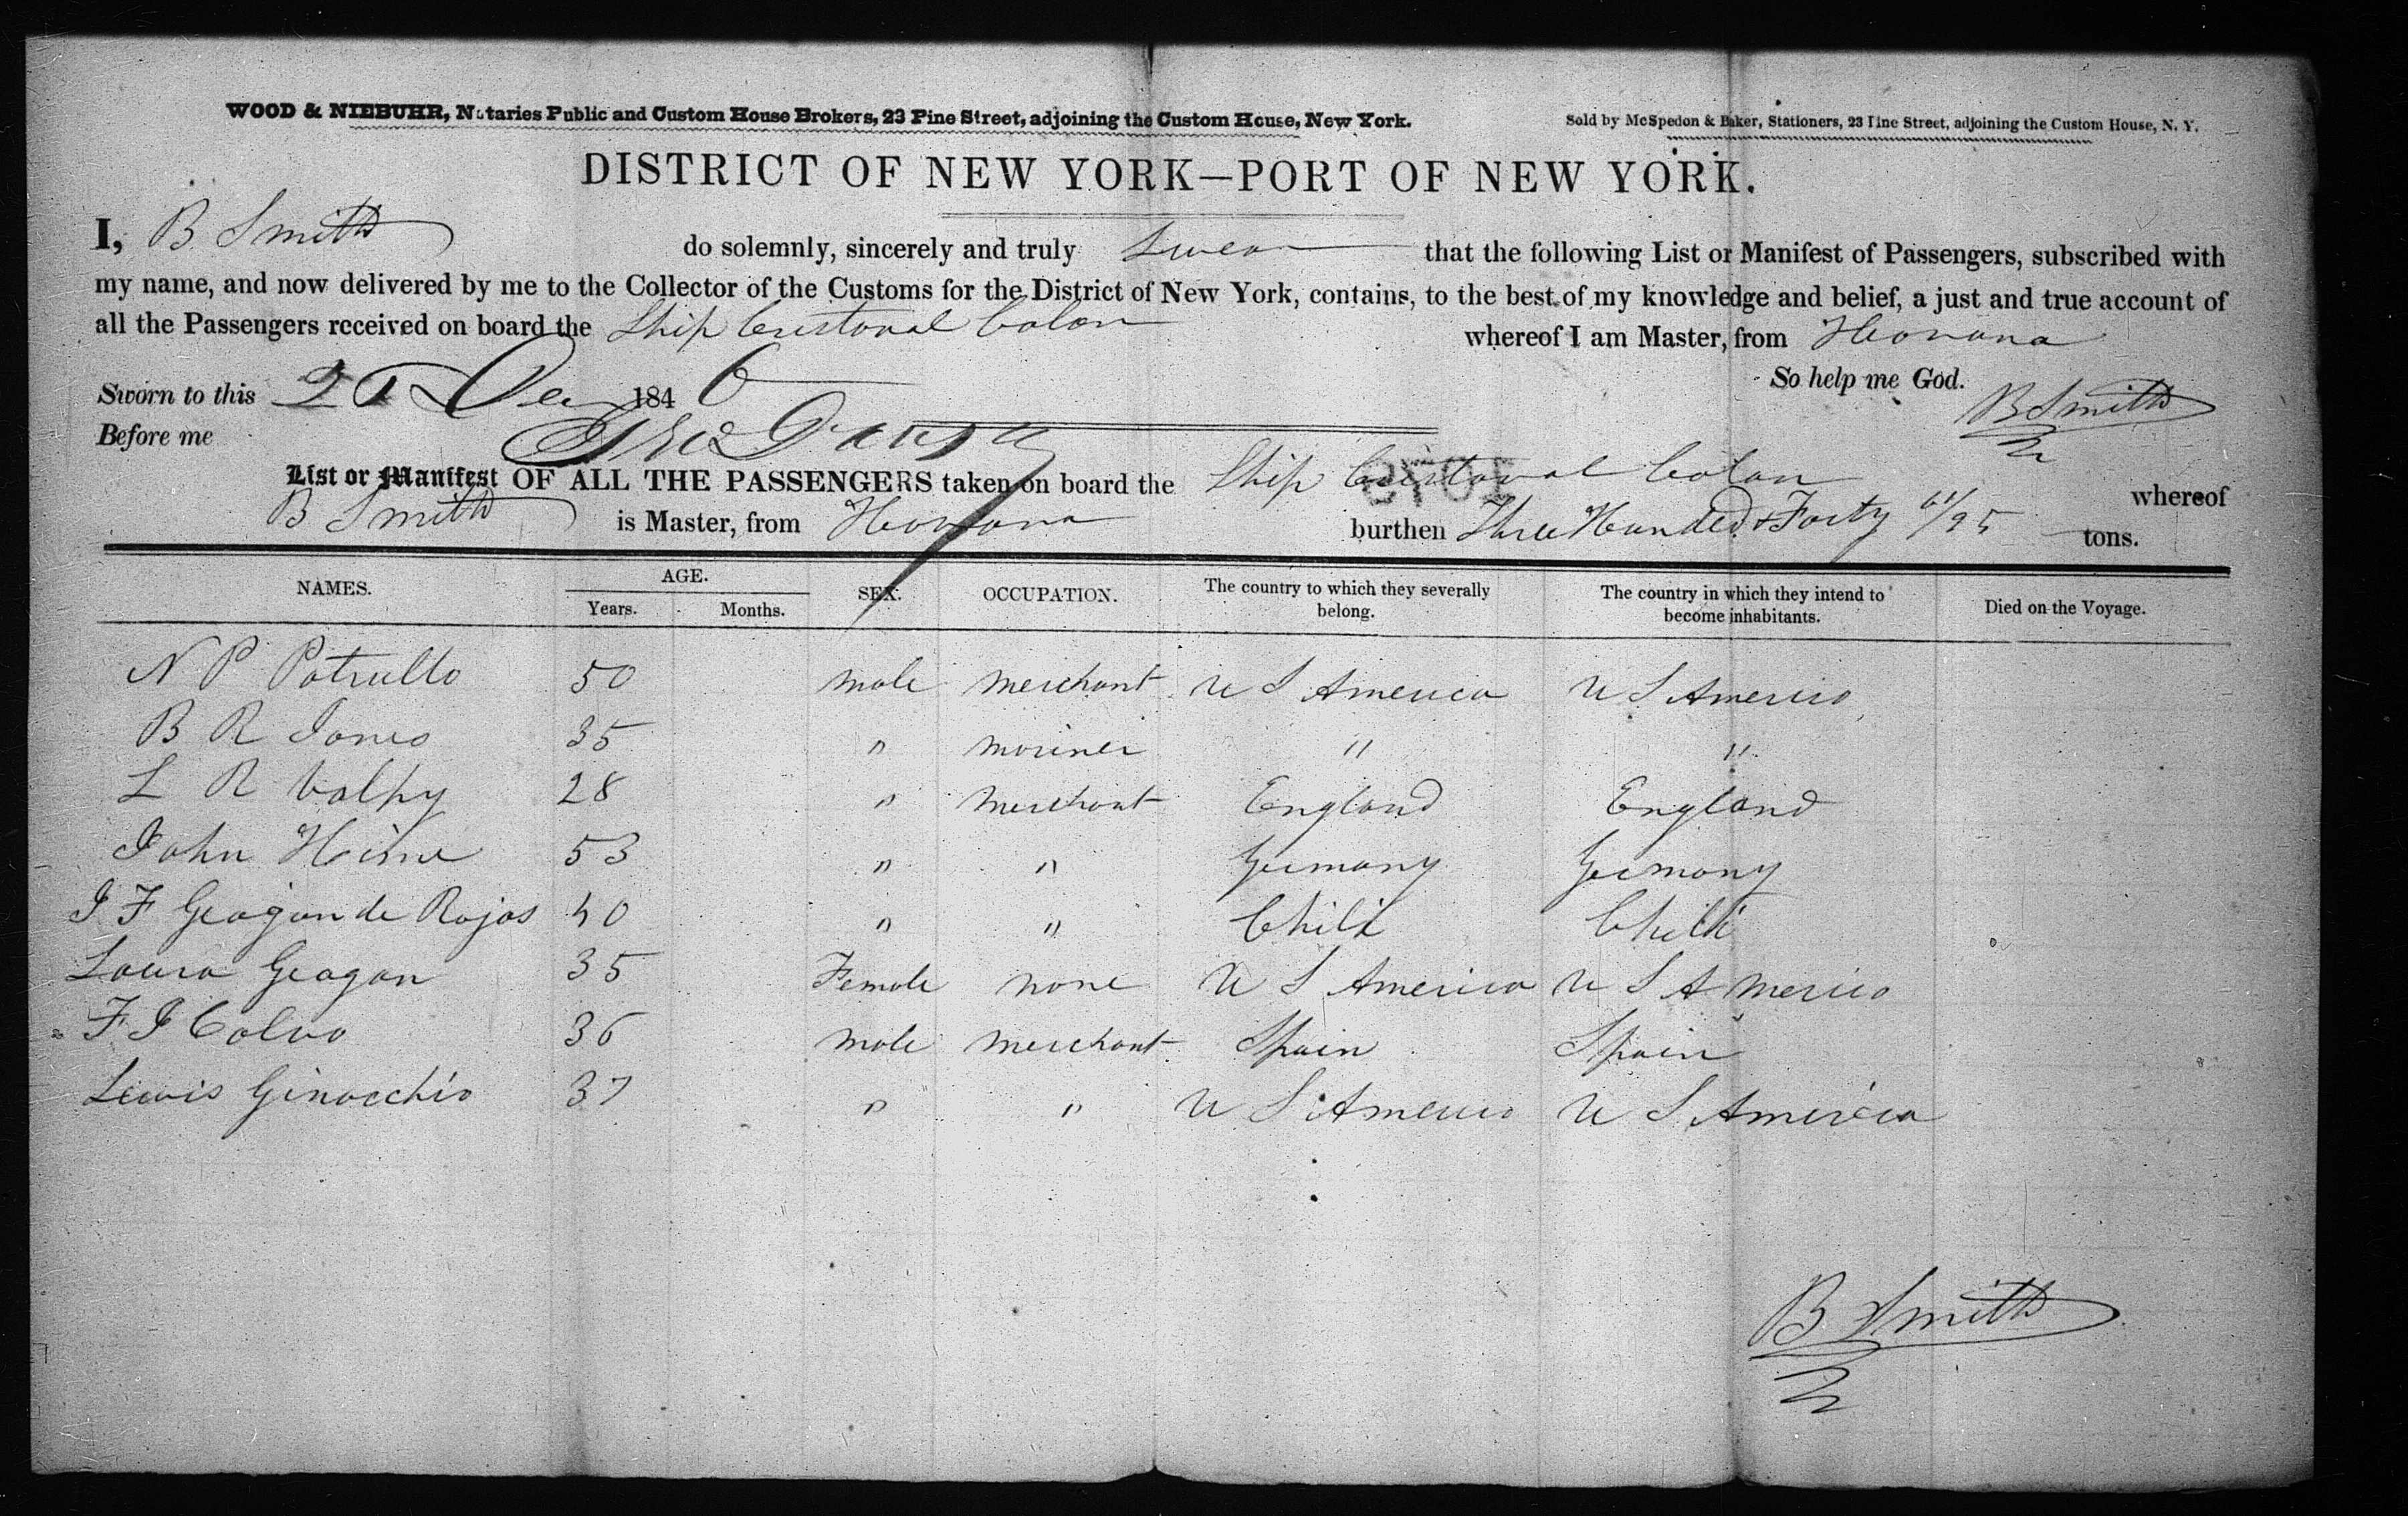 WOOD & NIEBUHR, Notaries Public and Custom House Brokers, 23 Pine Street, adjoining the Custom House, New York.
Sold by McSpedon & Baker, Stationers, 23 Pine Street, adjoining the Custom House, N. Y.
DISTRICT OF NEW YORK—PORT OF NEW YORK.
I, B Smith do solemnly, sincerely and truly Swear that the following List or Manifest of Passengers, subscribed with
my name, and now delivered by me to the Collector of the Customs for the District of New York, contains, to the best of my knowledge and belief, a just and true account of
all the Passengers received on board the Ship Cristoval Colon whereof I am Master, from Havana
So help me God.
Sworn to this 21 Dec 1846 B Smith
Before me
List or Manifest OF ALL THE PASSENGERS taken on board the Ship Cristoval Colon whereof
B Smith is Master, from Havana burthen Three Hundred & Forty /95 tons.
NAMES. AGE. SEX. OCCUPATION. The country to which they severally belong. The country in which they intend to become inhabitants. Died on the Voyage.
Years. Months.
N P Patrullo 50 male merchant U S America U S America
B R Jones 35 " mariner " "
L R Valpy 28 " merchant England England
John Heine 53 " " Germany Germany
J F Geagan de Rojas 40 " " Chili Chili
Laura Geagan 35 Female none U S America U S America
F J Calvo 36 male merchant Spain Spain
Lewis Ginocchio 37 " " U S America U S America
B Smith